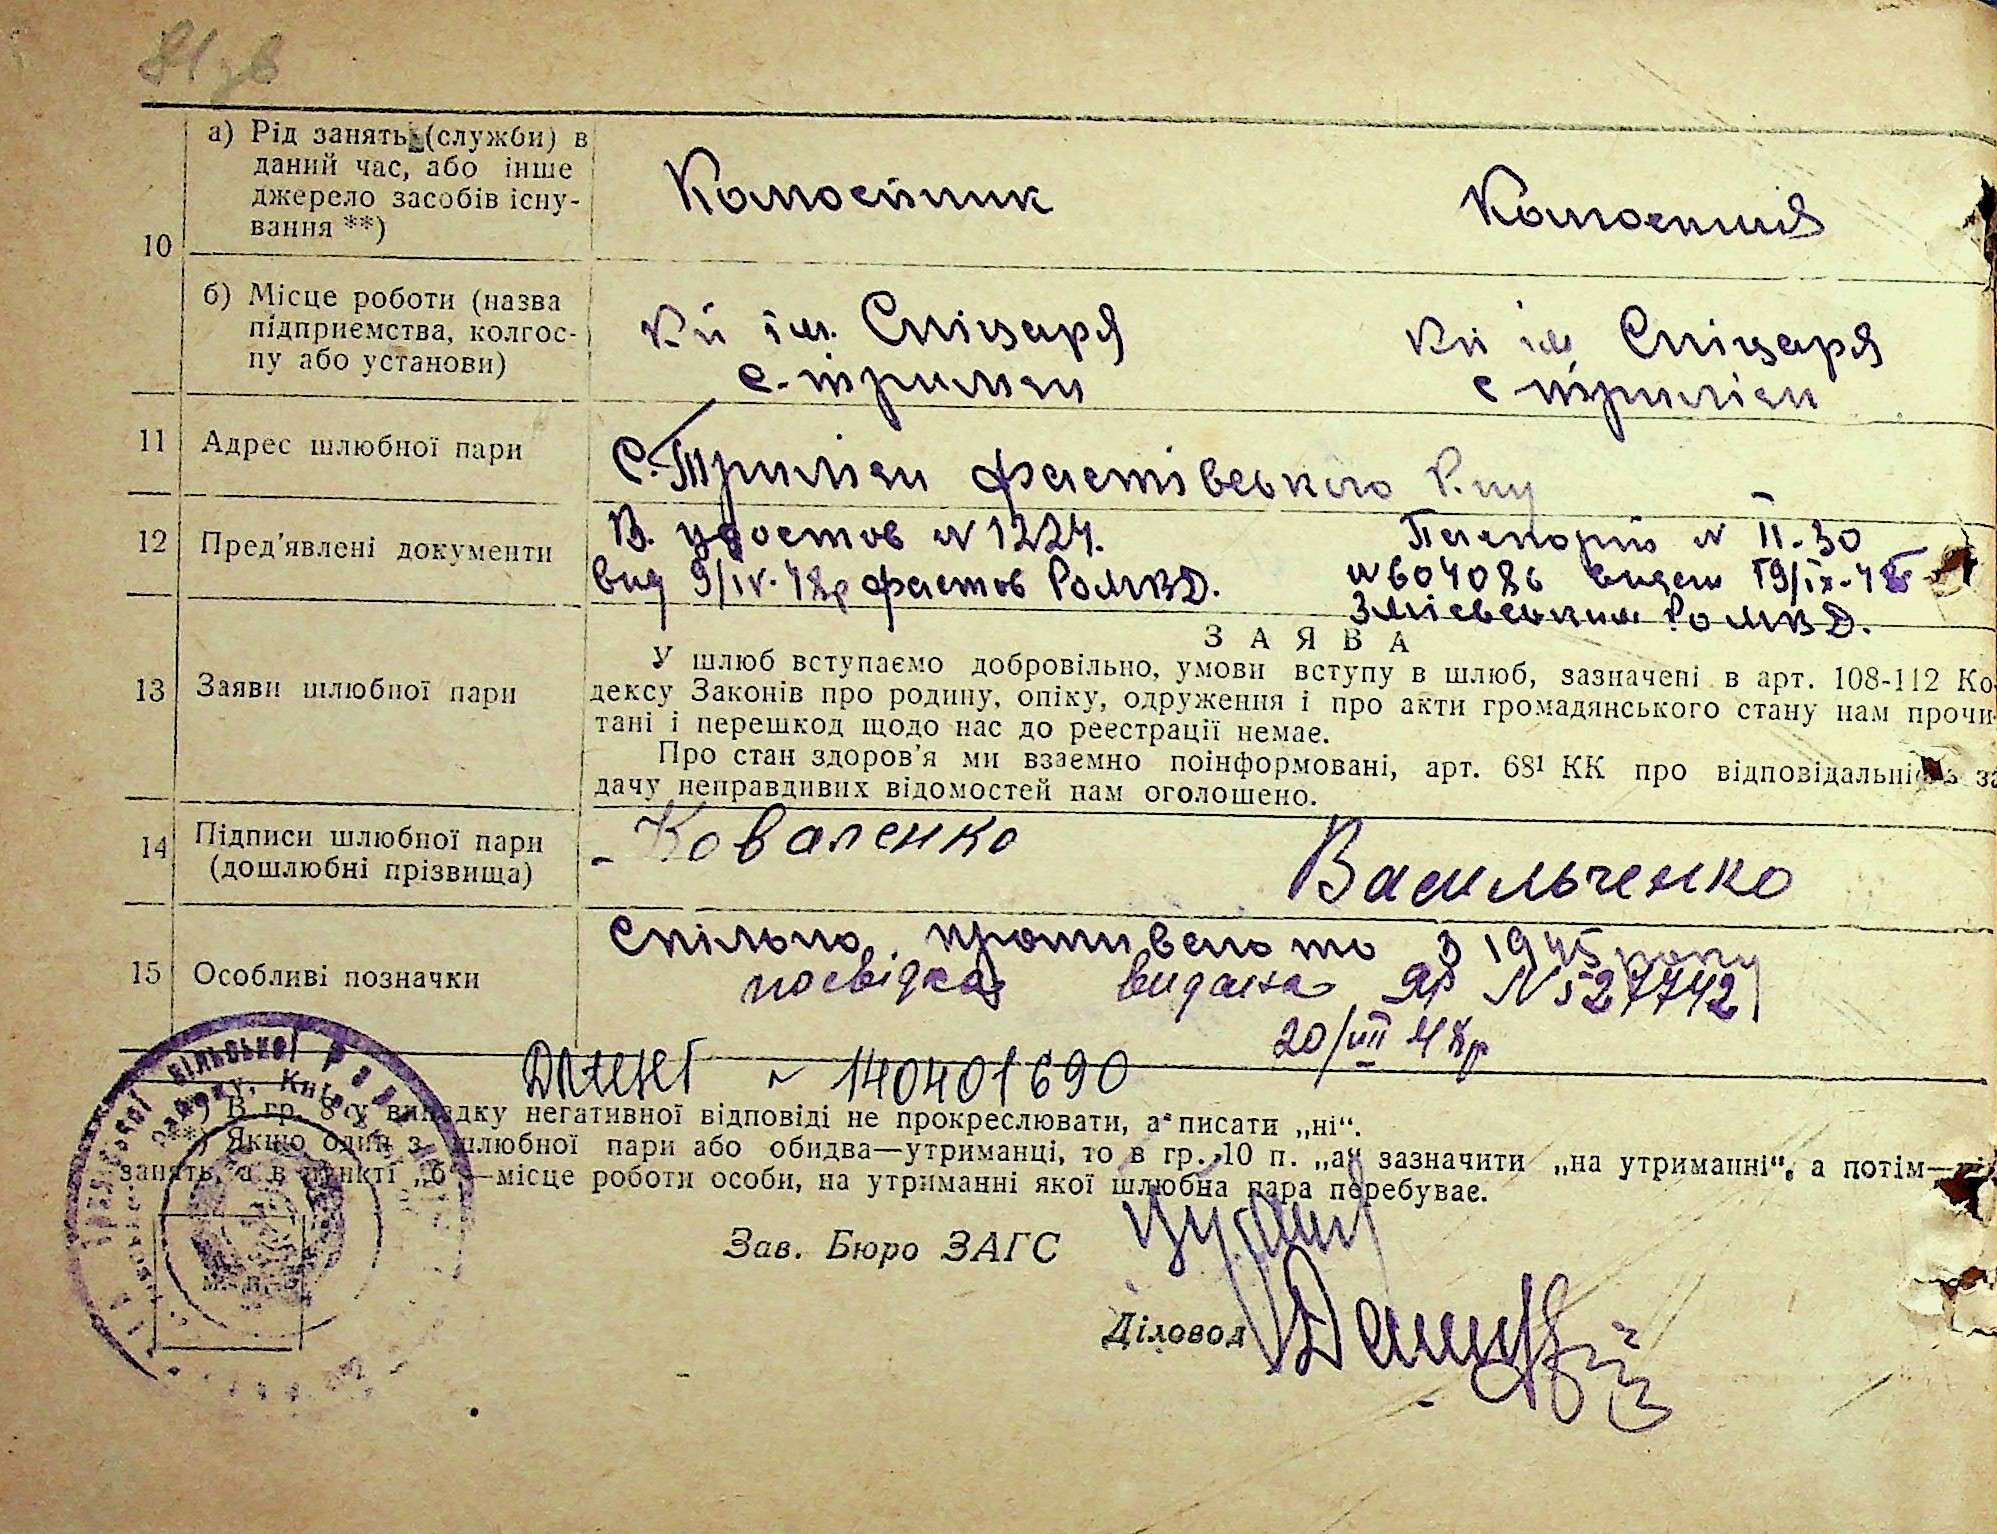 81 зв
а) Рід занять (службн) в
даний час, або інше
джерело засобів існу-
вання **)
10
б) Місце роботи (назва
підприємства, колгос-
пу або установи)
ім. Спіцаря
ім Спіцаря
11 Адрес шлюбної пари
С. Триліси Фастівського р-ну
12 Пред'явлені документи
В. удостов N 1224.
вид 9/IV-48р Фастов РоМВД.
Паспорт N II-30
N 604086 видан 19/IX-4
Зміевським РоМВД.
ЗАЯВА
13 Заяви шлюбної пари
У шлюб вступаємо добровільно, умови вступу в шлюб, зазначені в арт. 108-112 Ко-
дексу Законів про родину, опіку, одруження і про акти громадянського стану нам прочи-
тані і перешкод щодо нас до реестрації немає.
Про стан здоров'я ми взаємно поінформовані, арт. 68¹ КК про відповідальність за
дачу неправдивих відомостей нам оголошено.
14 Підписи шлюбної пари
(дошлюбні прізвища)
Коваленко
Васильченко
15 Особливі позначки
Спільно з 1945 року
посвідка видана ЯР N 527742
20/VII 48р
140401690
*) В гр. 8 у випадку негативної відповіді не прокреслювати, а писати „ні“.
**) Якщо один з шлюбної пари або обидва—утриманці, то в гр. 10 п. „а“ зазначити „на утриманні“, а потім—рід
занять, а в пункті „б“—місце роботи особи, на утриманні якої шлюбна пара перебуває.
Зав. Бюро ЗАГС
Діловод